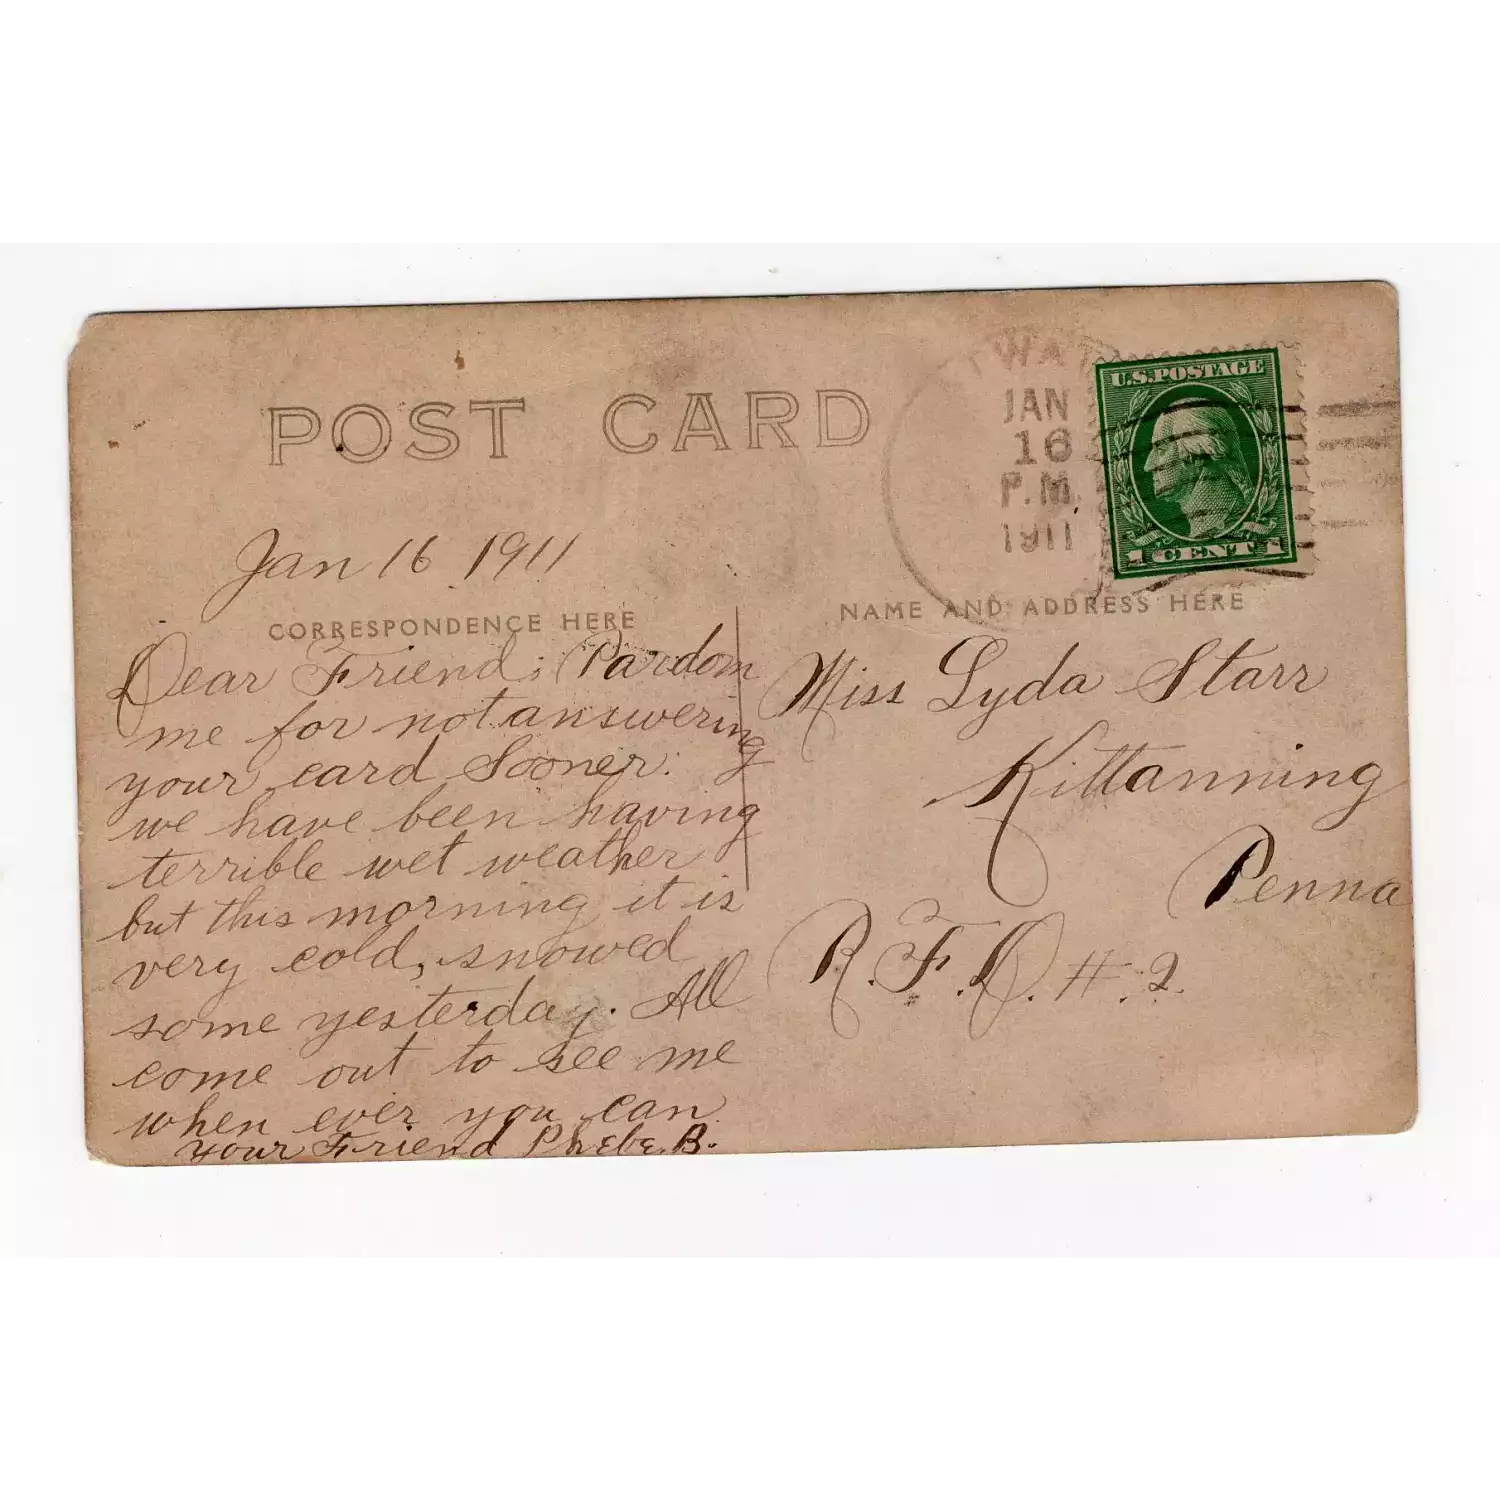 POST CARD
WA
JAN
16
P.M.
1911
U.S.POSTAGE
1 CENT 1
Jan 16 1911
CORRESPONDENCE HERE
Dear Friend; Pardom
me for not answering
your card Sooner.
we have been having
terrible wet weather
but this morning it is
very cold, snowed
some yesterday. All
come out to see me
when ever you can
your Friend Phebe B.
NAME AND ADDRESS HERE
Miss Lyda Starr
Kittanning
Penna
R.F.D. #.2.